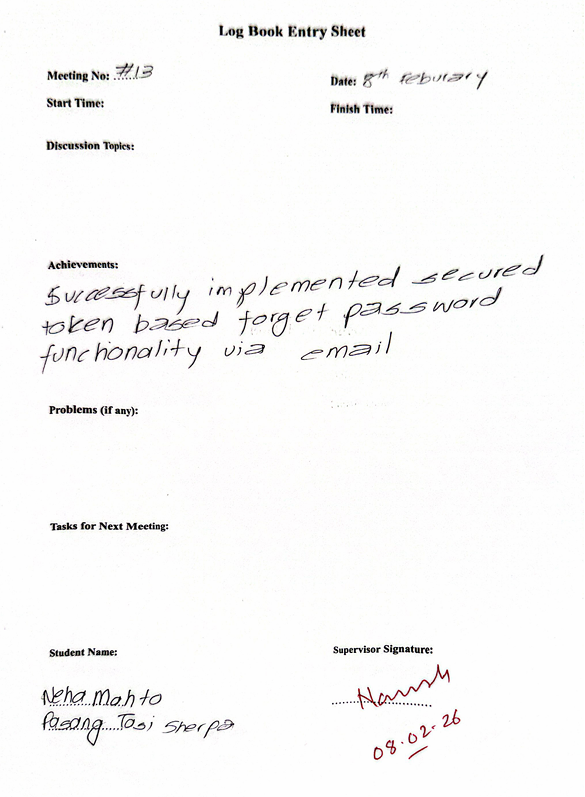 Log Book Entry Sheet
Meeting No: #13
Date: 8th Feburary
Start Time:
Finish Time:
Discussion Topics:
Achievements:
Successfully implemented secured
token based forget password
functionality via email
Problems (if any):
Tasks for Next Meeting:
Student Name:
Supervisor Signature:
Neha Mahto
Pasang Tasi Sherpa
08.02.26